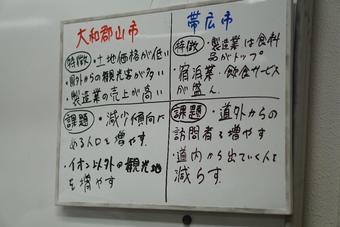 大和郡山市
特徴 ・土地価格が低い
・県外からの観光客が多い
・製造業の売上が高い
課題 ・減少傾向に
ある人口を増やす
・イオン以外の観光地
を増やす
帯広市
特徴 ・製造業は食料
品がトップ
・宿泊業・飲食サービス
が盛ん
課題 ・道外からの
訪問者を増やす
・道内から出ていく人を
減らす